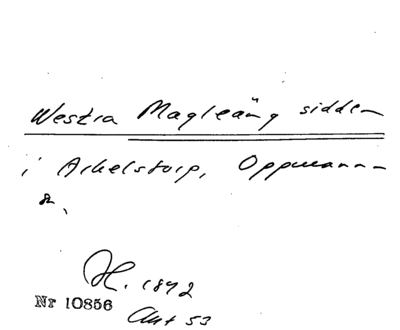 Westra Magleäng sidden
i Arkelstorp, Oppmanna
sn.
H. 1892
Nr 10856
Akt 53